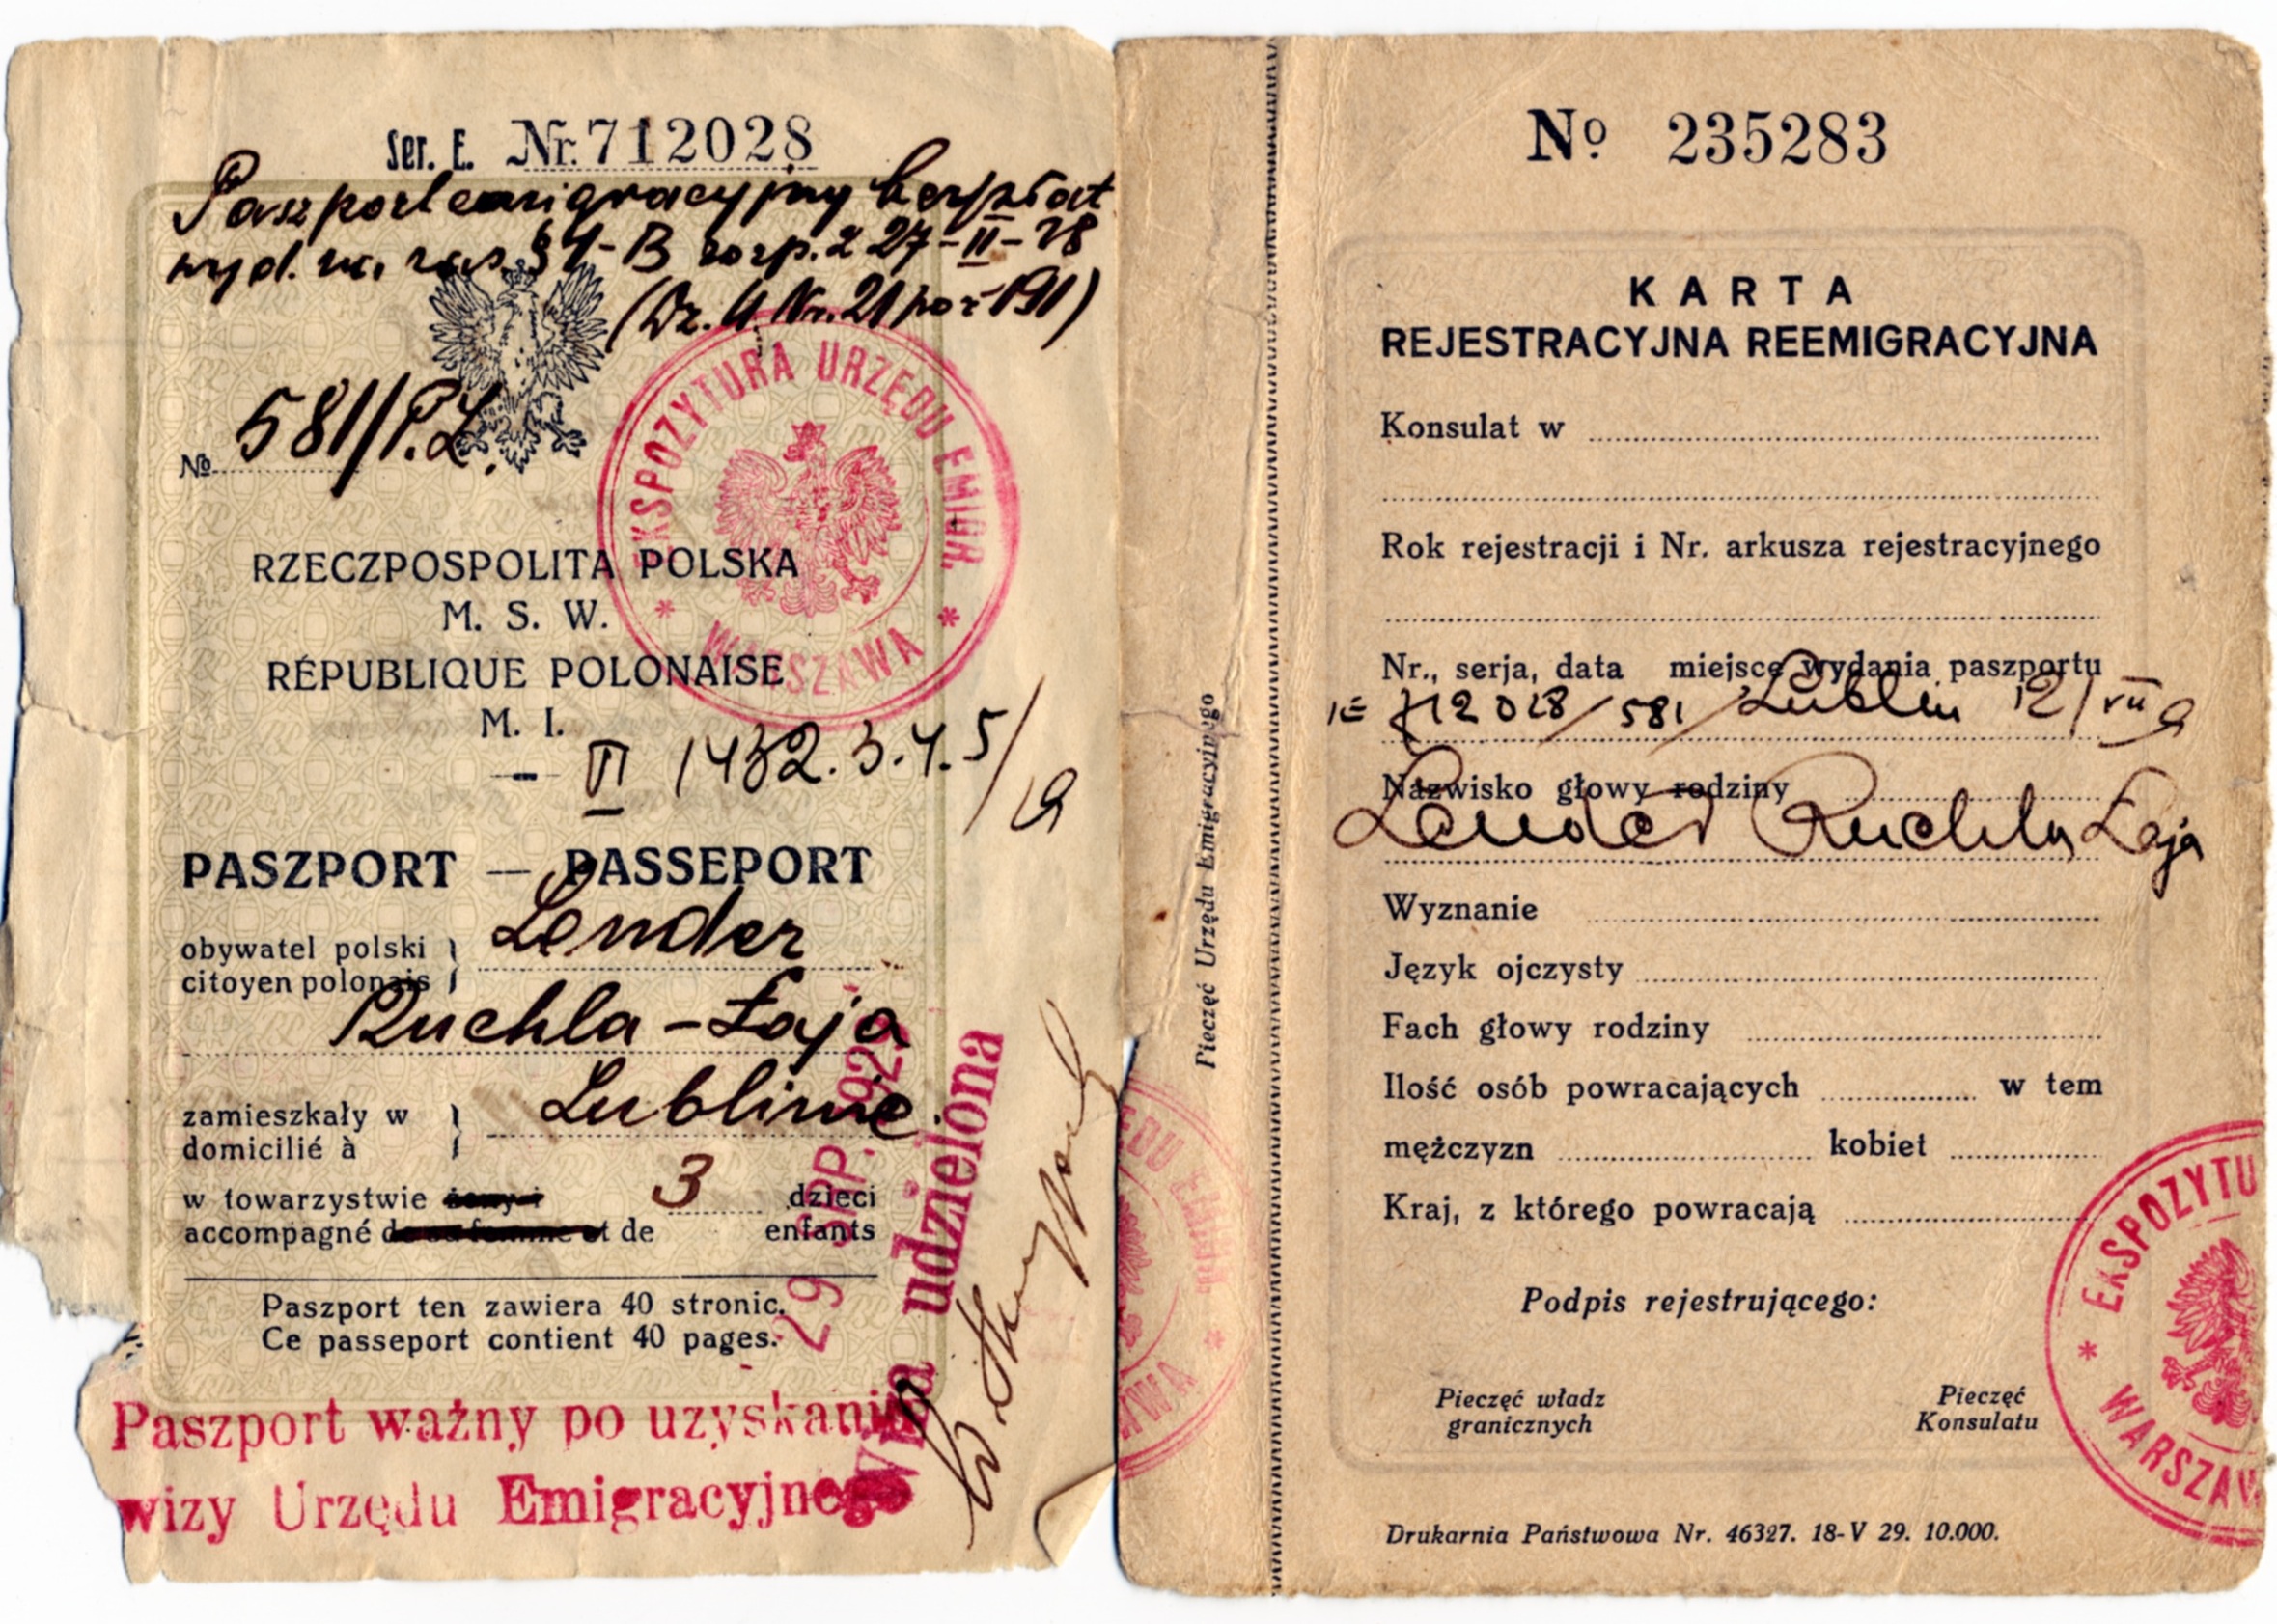 Ser. E. Nr. 712028
Paszport emigracyjny bezpłat
wyd. na zas. § 1-B rozp. z 27-II-28
(Dz. U. Nr. 21 poz 191)
EKSPOZYTURA URZĘDU EMIGR.
* WARSZAWA *
No 581/P.L.
RZECZPOSPOLITA POLSKA
M. S. W.
RÉPUBLIQUE POLONAISE
M. I.
PASZPORT — PASSEPORT
obywatel polski
citoyen polonais
Lender
Ruchla-Łaja
zamieszkały w
domicilié à
Lublinie.
w towarzystwie żony i 3 dzieci
accompagné de sa femme et de enfants
Paszport ten zawiera 40 stronic.
Ce passeport contient 40 pages.
udzielona
Paszport ważny po uzyskaniu
wizy Urzędu Emigracyjnego
No 235283
KARTA
REJESTRACYJNA REEMIGRACYJNA
Konsulat w
Rok rejestracji i Nr. arkusza rejestracyjnego
Nr., serja, data miejsce wydania paszportu
E 712028/581/Lublin 12/VII
Nazwisko głowy rodziny
Lender Ruchla Łaja
Wyznanie
Język ojczysty
Fach głowy rodziny
Ilość osób powracających w tem
mężczyzn kobiet
Kraj, z którego powracają
Podpis rejestrującego:
Pieczęć władz
granicznych
Pieczęć
Konsulatu
Drukarnia Państwowa Nr. 46327. 18-V 29. 10.000.
Pieczęć Urzędu Emigracyjnego
EKSPOZYTU
* WARSZAW